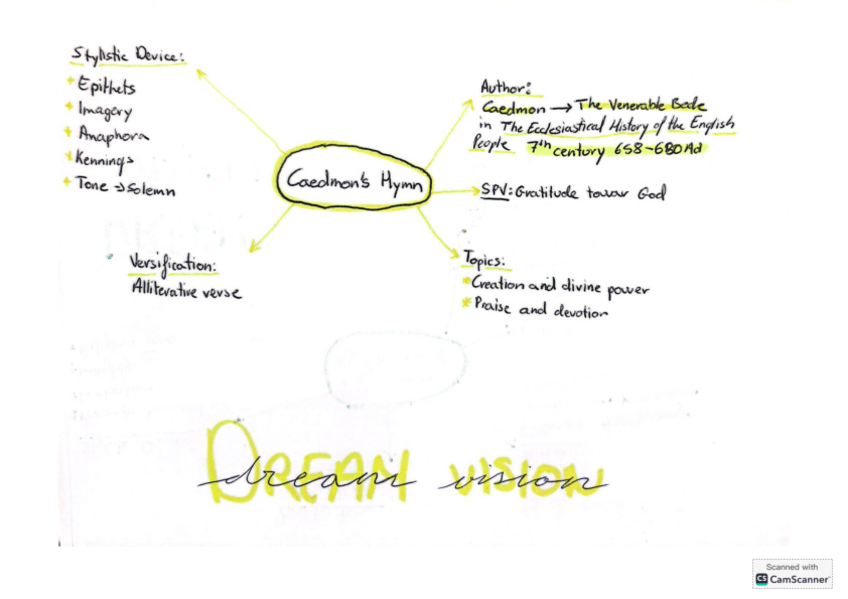 Stylistic Device:
+ Epithets
+ Imagery
+ Anaphora
+ Kennings
+ Tone → Solemn
Author:
Caedmon → The Venerable Bede
in The Ecclesiastical History of the English
People 7th century 658-680 Ad
Caedmon's Hymn
SPV: Gratitude towar God
Versification:
Alliterative verse
Topics:
* Creation and divine power
* Praise and devotion
DREAM VISION
dream vision
Scanned with
CS CamScanner